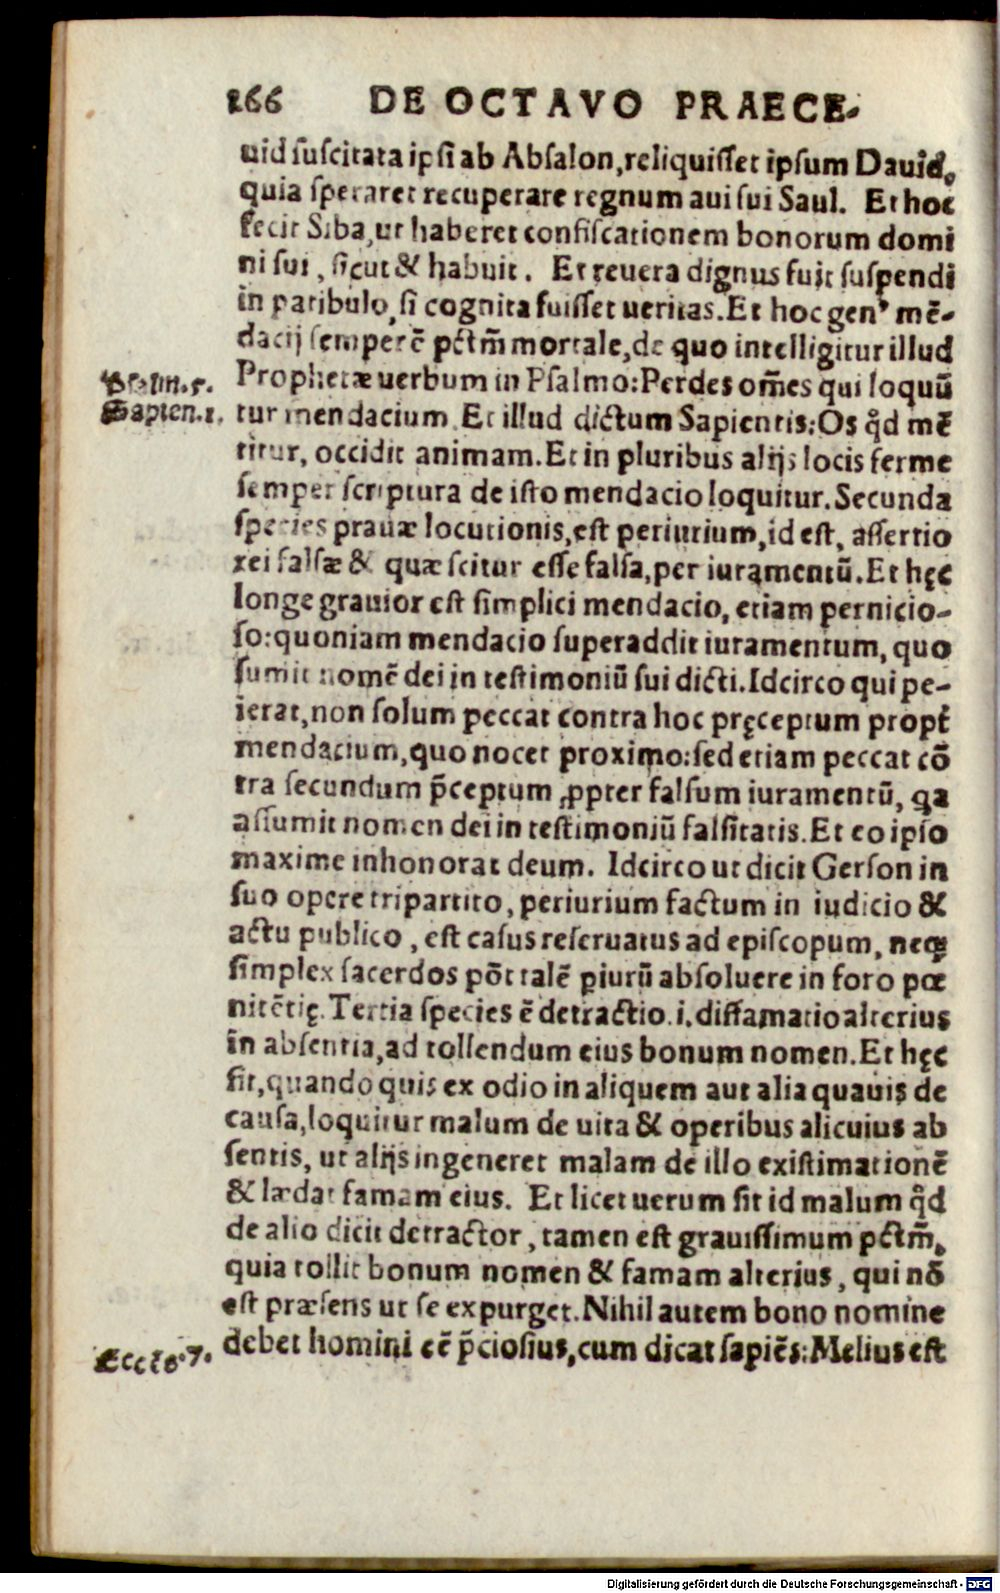 166 DE OCTAVO PRAECE-
uid suscitata ipsi ab Absalon, reliquisset ipsum Dauid,
quia speraret recuperare regnum aui sui Saul. Et hoc
fecit Siba, ut haberet confiscationem bonorum domi
ni sui, sicut & habuit. Et reuera dignus fuit suspendi
in patibulo, si cognita fuisset ueritas. Et hoc genꝰ mē-
dacij semper ē pctm̄ mortale, de quo intelligitur illud
Psalm. 5. Prophetæ uerbum in Psalmo: Perdes om̄es qui loquū
Sapien. 1. tur mendacium. Et illud dictum Sapientis: Os qd̓ mē
titur, occidit animam. Et in pluribus alijs locis ferme
semper scriptura de isto mendacio loquitur. Secunda
species prauæ locutionis, est periurium, id est, assertio
rei falsæ & quæ scitur esse falsa, per iuramentū. Et hęc
longe grauior est simplici mendacio, etiam pernicio-
so: quoniam mendacio superaddit iuramentum, quo
sumit nomē dei in testimoniū sui dicti. Idcirco qui pe-
ierat, non solum peccat contra hoc pręceptum propt̄
mendacium, quo nocet proximo: sed etiam peccat cō
tra secundum p̄ceptum ꝓpter falsum iuramentū, qa
assumit nomen dei in testimoniū falsitatis. Et eo ipso
maxime inhonorat deum. Idcirco ut dicit Gerson in
suo opere tripartito, periurium factum in iudicio &
actu publico, est casus reseruatus ad episcopum, neqꝫ
simplex sacerdos pōt talē ꝑiurū absoluere in foro pœ
nitētię. Tertia species ē detractio .i. diffamatio alterius
in absentia, ad tollendum eius bonum nomen. Et hęc
fit, quando quis ex odio in aliquem aut alia quauis de
causa, loquitur malum de uita & operibus alicuius ab
sentis, ut alijs ingeneret malam de illo existimationē
& lædat famam eius. Et licet uerum sit id malum qd̓
de alio dicit detractor, tamen est grauissimum pctm̄,
quia tollit bonum nomen & famam alterius, qui nō
est præsens ut se expurget. Nihil autem bono nomine
Eccle. 7. debet homini eē p̄ciosius, cum dicat sapiēs: Melius est
Digitalisierung gefördert durch die Deutsche Forschungsgemeinschaft - DFG